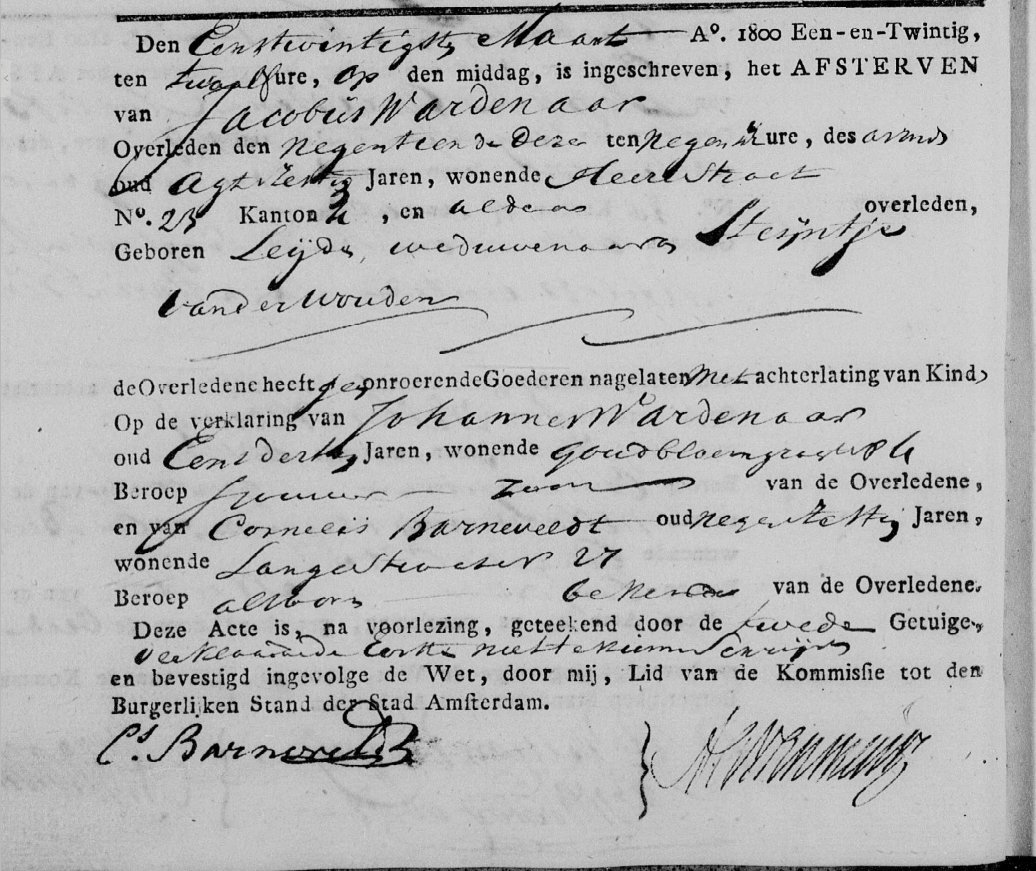 Den Eenstwentigste Maart A°. 1800 Een-en-Twintig,
ten twaalf ure, op den middag, is ingeschreven, het AFSTERVEN
van Jacobus Wardenaar
Overleden den negentiende dezer ten negen ure, des avonds
oud Jaren, wonende Heerestraat
N°. 23 Kanton 2, en aldaar overleden,
Geboren Leijden weduwenaar van Steijntje
van der Wouden
de Overledene heeft geen onroerende Goederen nagelaten Met achterlating van Kind
Op de verklaring van Johannes Wardenaar
oud Eendertig Jaren, wonende Goudbloemgragt
Beroep Sjouwer zoon van de Overledene,
en van Cornelis Barneveldt oud negenzestig Jaren,
wonende Langestraat 27
Beroep alvoren bekende van de Overledene.
Deze Acte is, na voorlezing, geteekend door de twede Getuige,
verklaarende Eerste niet te kunnen schrijven
en bevestigd ingevolge de Wet, door mij, Lid van de Kommissie tot den
Burgerlijken Stand der Stad Amsterdam.
Cs. Barneveldt